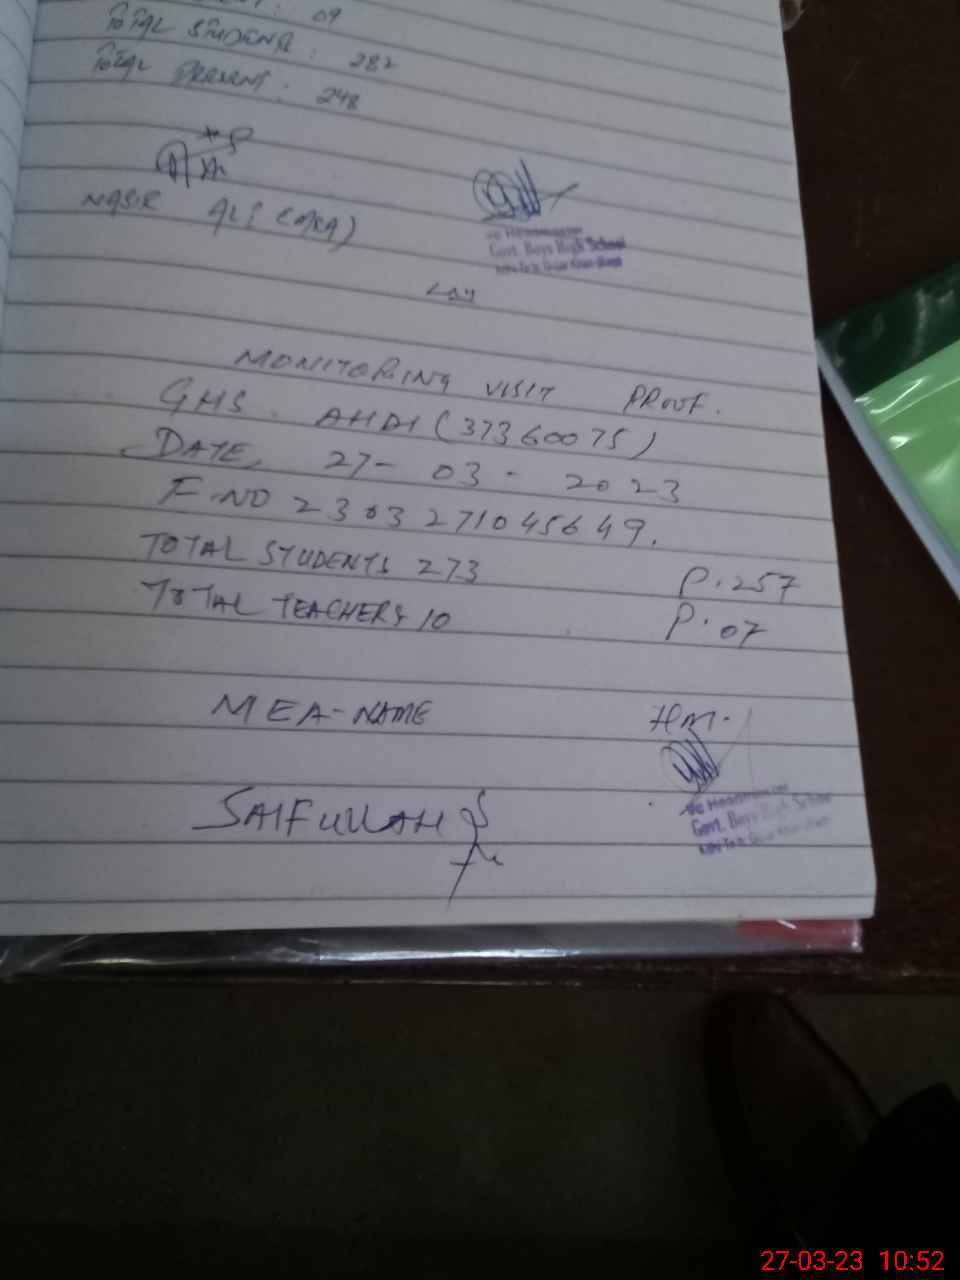 : 09
TOTAL STUDENT : 282
TOTAL PRESENT : 248
NASIR ALI (MEA)
Govt. Boys High School
MONITORING VISIT PROOF.
GHS. AHDI (37360075)
DATE, 27- 03 - 2023
F.NO 2303271045649.
TOTAL STUDENTS 273 P.257
TOTAL TEACHERS 10 P.07
MEA-NAME HM.
SAIFULLAH
Govt. Boys High School
27-03-23 10:52